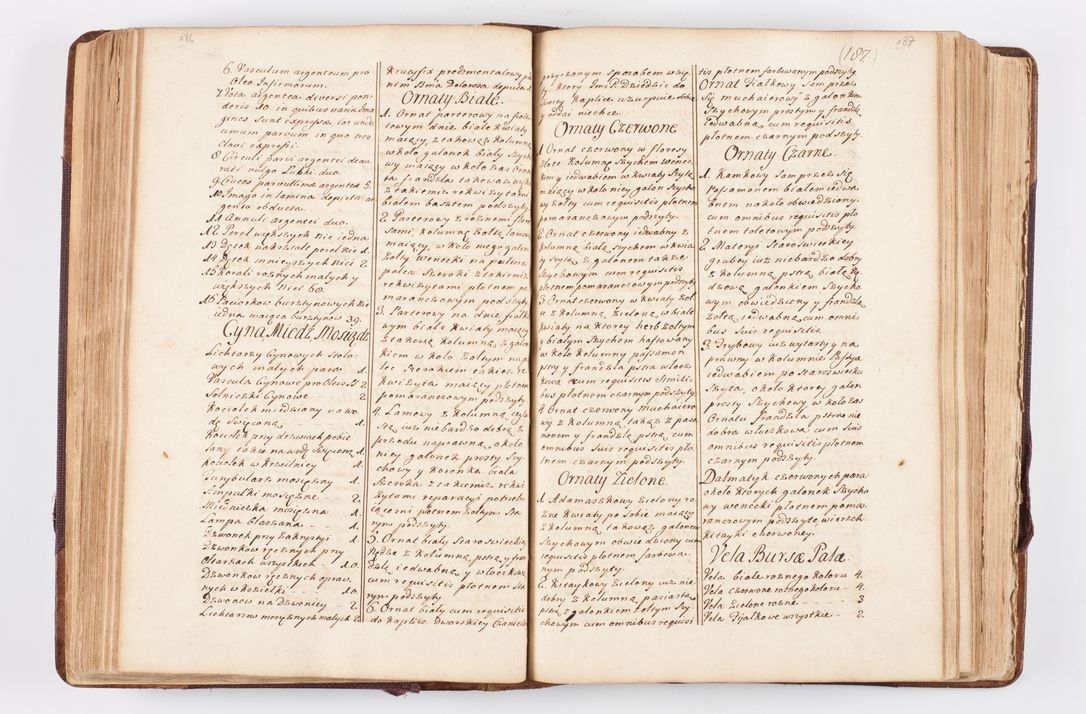 186
6. Vasculum argenteum pro
Oleo Infirmorum.
7. Vota argentea diversi pon
deris 10. in quibus variæ Ima
gines sunt expressæ Cor unde
cumum parvum in quo tres
clavi expressi.
8. Circuli parvi argentei deau
rati vulgo Tubki duo.
9. Cruces parvulinæ argenteæ 5.
10. Imago in lamina depicta ar
gento obducta.
11. Annuli argentei duo.
12. Pereł większych nic iedna
13. Pętek na krztałt pereł nic 1
14. Pętek mnieyszych Nici 2.
15. Korali roznych małych y
większych Nici 60.
16. Paciorkow bursztynowych Nic
iedna maiąca bursztynow 39.
Cyna Miedź Mosiądz
Lichtarzy Cynowych Stoło-
wych małych para 1.
Vascula Cynowe pro Oleis SS 2
Solniczki Cynowe 2
Kociołek miedziany na wo
dę Swięconą 1.
Kociołek przy drzwiach pobie
lany także na wodę Swięconą 1.
Kociołek w Krzcilnicy 1.
Turybularz mosiężny 1.
Ampułki mosiężne 2.
Miedniczka mosiężna 1.
Lampa blaszana 1.
Dzwonek przy Zakrystyi 1
Dzwonkow ręcznych przy
Ołtarzach wszystkich 10.
Dzwonkow ręcznych opraw
nych w koziełki 10.
Dzwonow na Dzwonicy 2
Lichtarzow mosiężnych małych 2
Krucyfix prezmentalowy
nem Bmæ Dolorosæ depicta
Ornaty Białe.
1. Ornat parterowy na fiole
towym dnie białe kwiaty
maiący, z takowąż kolumną
wkoło galonek biały Szych
wy maiący wkoło zas Orna
ta frandzla takowaz
z takiemiż rekwizytami
białem basztem podszyty
2. Parterowy z roznemi flore
sami, kolumną żołtą lamową
maiący, w koło niego galon
żołty wenecki na puł
palca Szeroki z takiemiż
rekwizytami płotnem po
marańczowym podszyty
3. Parterowy na dnie fiałko
wym białe kwiaty maiący
z takową kolumną z galon
kiem w koło żołtym na pa
lec Szerokim takież re
kwizyta maiący płotnem
pomarańczowym podszyty
4. Lamowy z kolumną ceglas
tą iuż nie bardzo dobrą z
przodu naprawną, około
niey galonek prosty Szy
chowy y koronka biała
Szeroka z takiemiż rekwi
zytami reparacyi potrzebu
iącemi płotnem żołtym sta
rym podszyty.
5. Ornat biały Staroswiecki
Rydze z kolumną pstrą y fran
dzlą iedwabną y włoczkową
cum requisitis płotnem sta
rym podszyty
6. Ornat biały cum requisitis
do Kaplice Dworskiey Czaniec
(187)
187
pozyczonym sposobem wzię
ty ktory Jmc P. Dziedzic do
swoiey kaplice uzurpuie sobie
y oddać niechce.
Ornaty Czerwone
1. Ornat czerwony w floresy
złote kolumnę szychem wenec
kim y iedwabiem w kwiaty szytą
maiący w koło niey galon szycho
wy żołty cum requisitis płotnem
pomarańczowym podszyty.
2. Ornat czerwony iedwabny z
kolumną białą szychem w kwia
ty szytą z galonem także
szychowym cum requisitis
płotnem pomarańczowym podszyty
3. Ornat czerwony w kwiaty żoł
te z kolumną zieloną w białe
kwiaty na ktorey herb żołtym
y białym szychem haftowany
w koło kolumny pasamon
pstry y frandzla pstra włocz
kowa cum requisitis simili
bus płotnem czarnym podszyty
4. Ornat czerwony muchaiero
wy z kolumną takąż z pasa
monem y frandzlą pstrą cum
omnibus suis requisitis pło
tnem czarnym podszyty.
Ornaty Zielone.
1. Adamaszkowy zielony ro
żne kwiaty po sobie maiący
z kolumną takową, galonem
szychowym obwiedziony cum
requisitis płotnem farbowa
nym podszyty.
2. Kitaykowy zielony iuż nie
dobry z kolumną pasiasta
pstrą z galonkiem żołtym szy
chowym cum omnibus requisi
tis płotnem farbowanym podszyty
Ornat Fiałkowy sam przez
się muchaierowy z galonkiem
szychowym prostym y frandzlą
iedwabną cum requisitis
płotnem czarnym podszyty.
Ornaty Czarne.
1. Kamkowy sam przez się
Passamonem białem iedwa
bnem na koło obwiedziony.
cum omnibus requisitis pło
tnem toletowym podszyty.
2. Materyi Staroswieckiey
grubey iuż niebardzo dobry
z kolumną pstrą białą Rę
dzową galonkiem szycho
wym obwiedziony y frandzlą
żołtą iedwabną cum omni
bus suis requisitis.
3. Trybowy iuż wytarty y na
prawny w kolumnie Passya
iedwabiem po Staroswiecku
szyta, około ktorey galon
prosty szychowy w koło zas
Ornatu frandzla pstra nie
dobra włoczkowa cum suis
omnibus requisitis płotnem
czarnym podszyty.
Dalmatyk czerwonych para
około ktorych galonek szycho
wy wenecki płotnem poma
rańczowym podszyte wierzch
kitayki czerwoney.
Vela Bursæ Palæ
Vela białe roznego koloru 4.
Vela czerwone roznego koloru 4.
Vela zielone rozne 3
Vela Fijałkowe wszystkie 2.